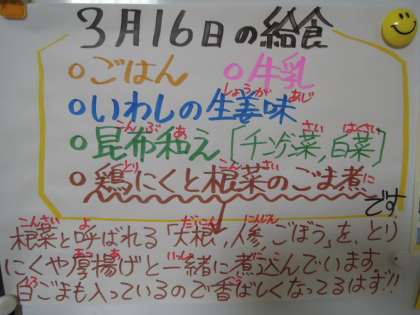 3月16日の給食
○ごはん ○牛乳
○いわしの生姜味
○昆布和え〔チンゲン菜,白菜〕
○鶏にくと根菜のごま煮
です
根菜と呼ばれる「大根,人参,ごぼう」を、とり
にくや厚揚げと一緒に煮込んでいます。
白ごまも入っているので香ばしくなってるはず!!